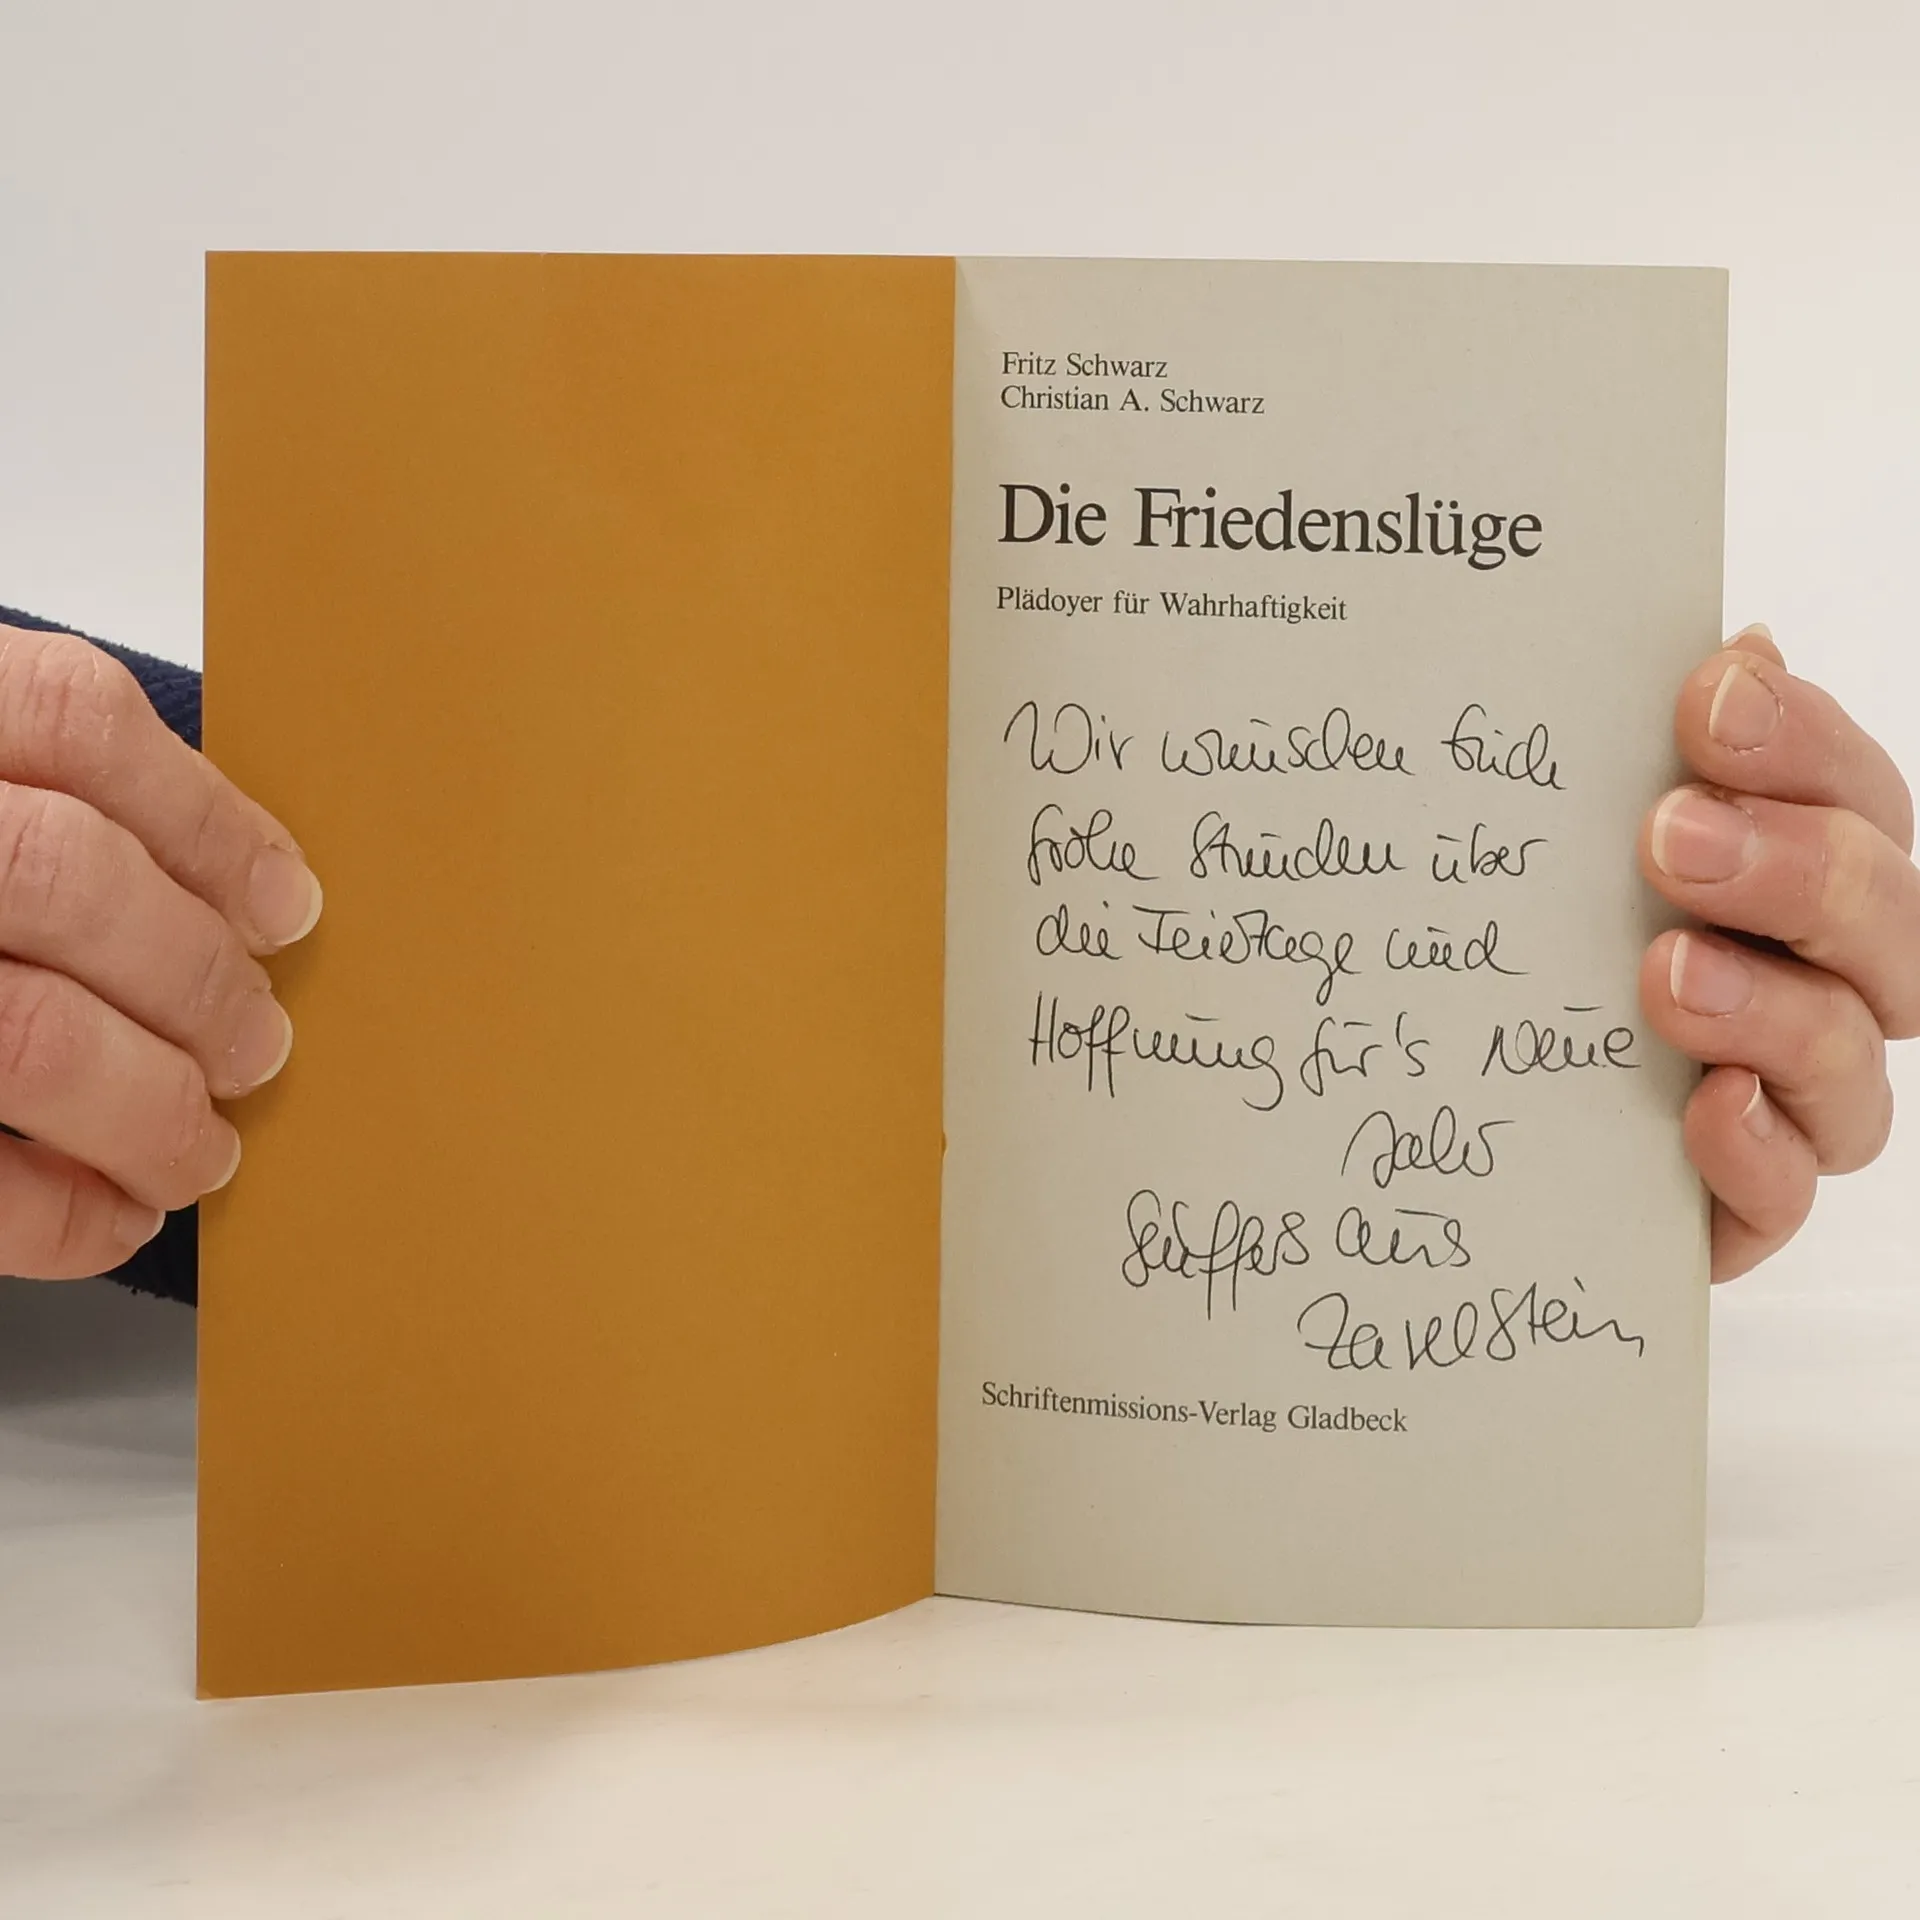 Fritz Schwarz
Christian A. Schwarz
Die Friedenslüge
Plädoyer für Wahrhaftigkeit
Wir wünschen Euch
frohe Stunden über
die Feiertage und
Hoffnung für's Neue
Jahr
aus
Zavelstein
Schriftenmissions-Verlag Gladbeck